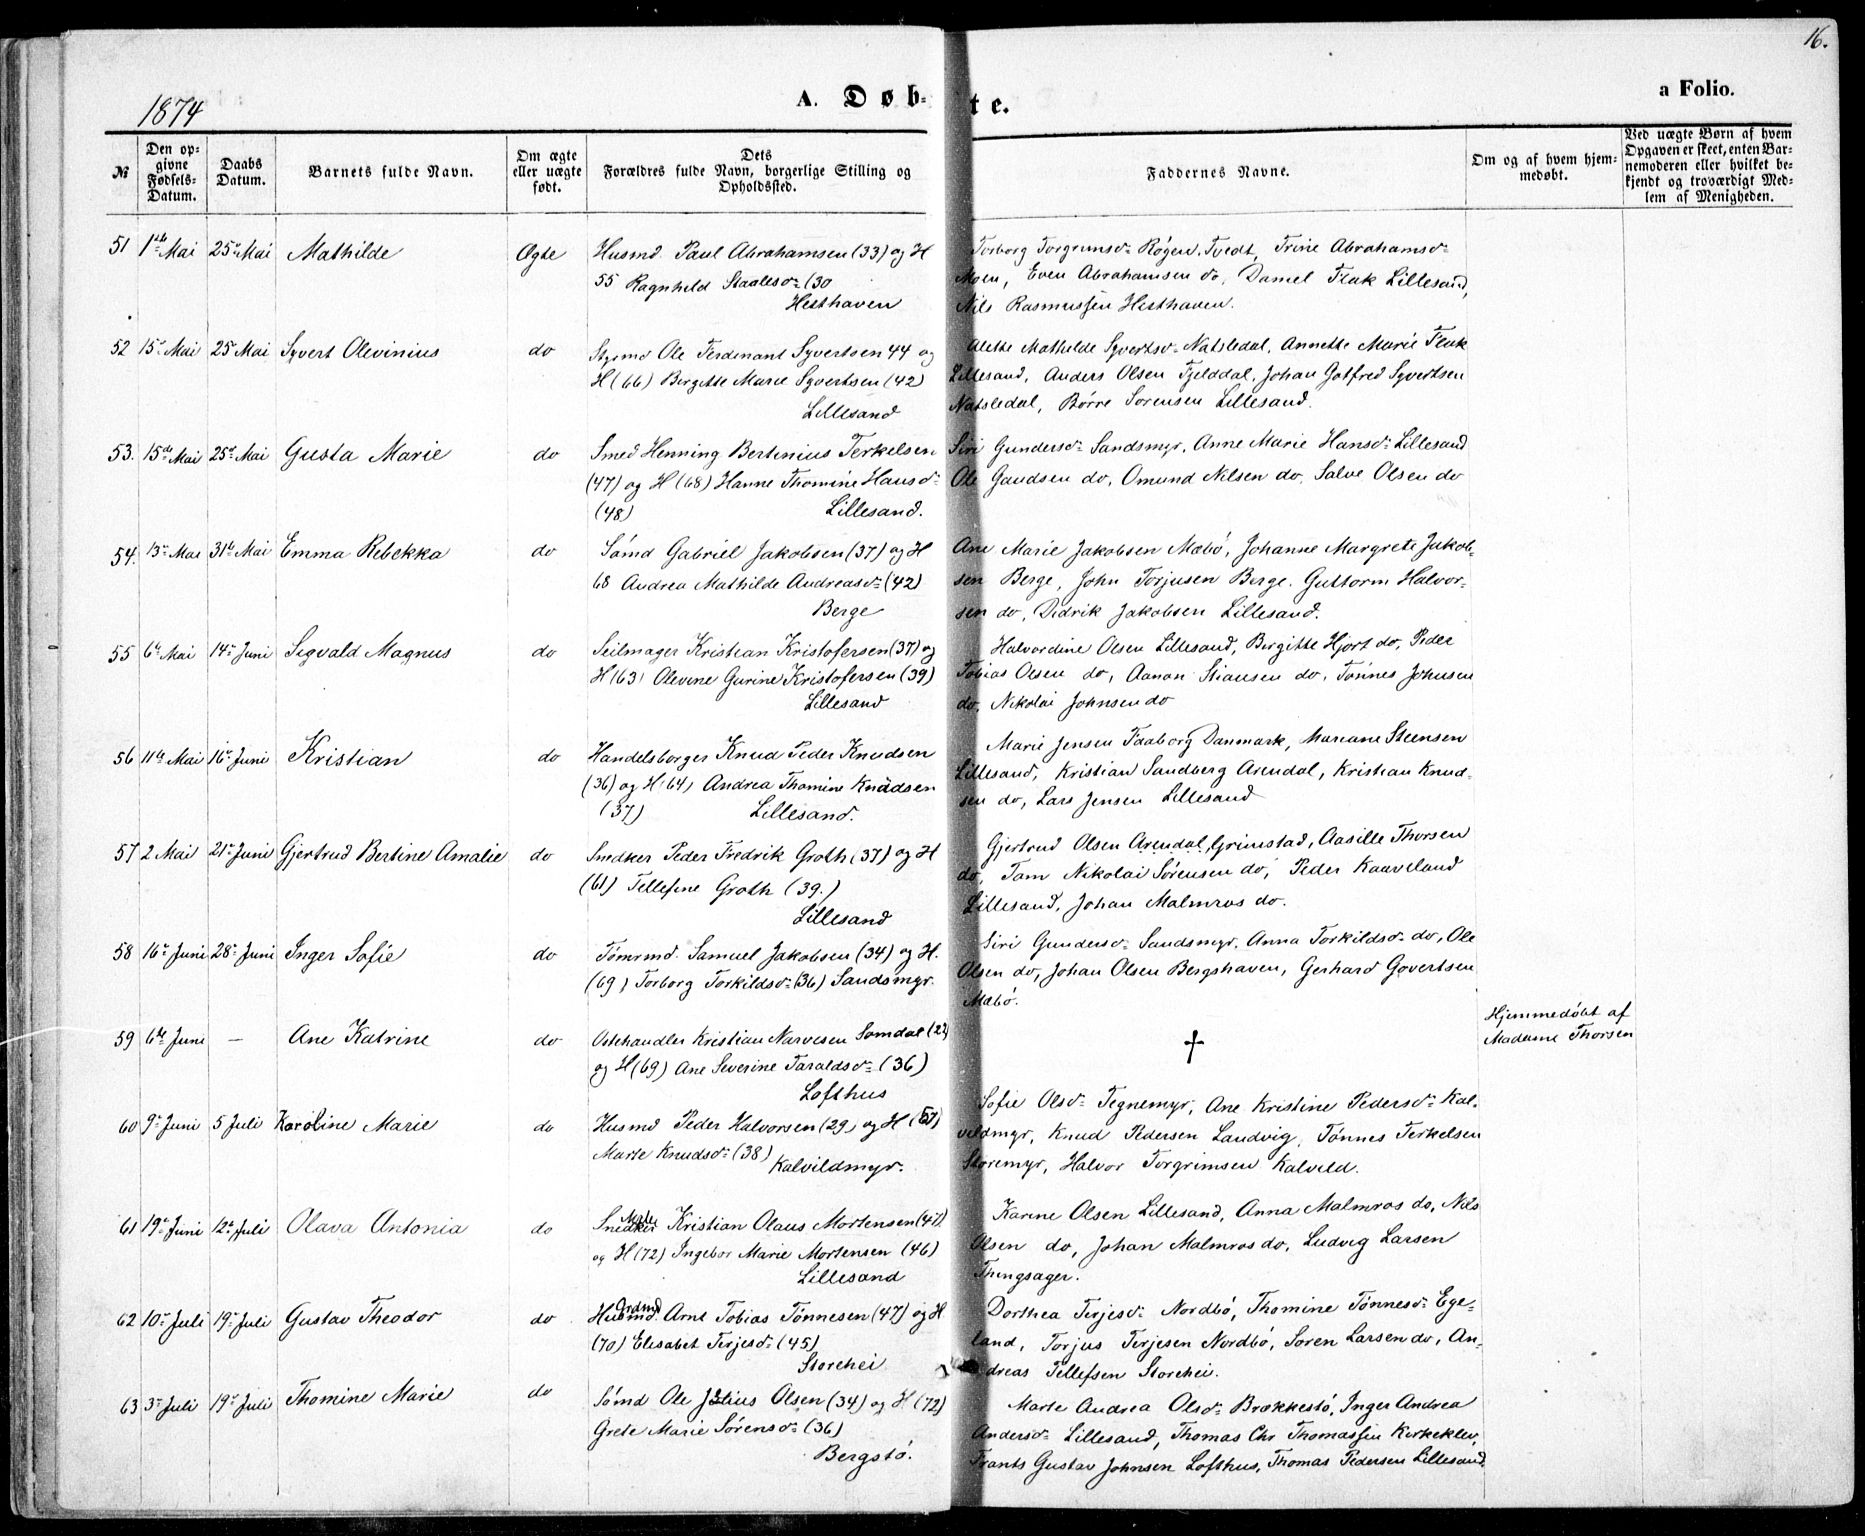 16.
1874
A. Døb-
te.
a Folio.
№
Den op-
givne
Fødsels-
Datum.
Daabs
Datum.
Barnets fulde Navn.
Om ægte
eller uægte
født.
Dets
Forældres fulde Navn, borgerlige Stilling og
Opholdssted.
Faddernes Navne.
Om og af hvem hjem-
medøbt.
Ved uægte Børn af hvem
Opgaven er skeet, enten Bar-
nemoderen eller hvilket be-
kjendt og troværdigt Med-
lem af Menigheden.
51 1ste Mai 25de Mai Mathilde Ægte Husmd. Paul Abrahamsen (33) og H
55 Ragnhild Staalesd: (30
Hesthaven
Torborg Torgrimsd: Røgen. Tvedt, Trine Abrahamsd:
Moen, Even Abrahamsen do, Daniel Flak Lillesand,
Nils Rasmussen Hesthaven.
52 15de Mai 25 Mai Syvert Olevinius do Styrmd Ole Ferdinant Syvertsen 44 og
H (66) Birgitte Marie Syvertsen (42)
Lillesand
Alette Mathilde Syvertsd: Natsledal, Annette Marie Flak
Lillesand, Anders Olsen Fjelddal, Johan Gotfred Syvertsen
Natsledal, Børre Sørensen Lillesand.
53. 15de Mai 25de Mai Gusta Marie do Smed Henning Bertinius Terkelsen
(47) og H (68) Hanne Thomine Hansd:
(48) Lillesand.
Siri Gundersd: Sandsmyr, Anne Marie Hansd: Lillesand
Ole Gundsen do, Omund Nilsen do, Salve Olsen do
54. 13de Mai 31te Mai Emma Rebekka do Sømd Gabriel Jakobsen (37) og H
68 Andrea Mathilde Andreasd: (42)
Berge
Ane Marie Jakobsen Mæbø, Johanne Margrete Jakob-
sen Berge, John Torjusen Berge. Guttorm Halvor-
sen do, Didrik Jakobsen Lillesand.
55 6te Mai 14de Juni Sigvald Magnus do Seilmager Kristian Kristofersen (37) og
H (63) Olevine Gurine Kristofersen (39)
Lillesand
Halvordine Olsen Lillesand, Birgitte Hjort do, Peder
Tobias Olsen do, Aanon Stiansen do, Tønnes Johnsen
do, Nikolai Johnsen do
56 11te Mai 16de Juni Kristian do Handelsborger Knud Peder Knudsen
(36) og H (64) Andrea Thomine Knudsen
(37) Lillesand.
Marie Jensen Faaborg Danmark, Mariane Steensen
Lillesand, Kristian Sandberg Arendal, Kristian Knud-
sen do, Lars Jensen Lillesand
57 2 Mai 21de Juni Gjertrud Bertine Amalie do Snedker Peder Fredrik Groth (37) og H
(61) Tellefine Groth (39.)
Lillesand
Gjertrud Olsen Arendal, Grimstad, Aasille Thorsen
do, Tom Nikolai Sørensen do, Peder Kaaveland
Lillesand, Johan Malmros do.
58 16de Juni 28de Juni Inger Sofie do Tømrmd. Samuel Jakobsen (34) og H.
(69) Torborg Torkildsd: (36) Sandsmyr.
Siri Gundersd: Sandsmyr, Anna Torkildsd: do, Ole
Olsen do, Johan Olsen Bergshaven, Gerhard Govertsen
Mæbø.
59 6te Juni — Ane Katrine do Ostehandler Kristian Narvesen Somdal (22)
og H (69) Ane Severine Taraldsd: (36)
Lofthus
†
Hjemmedøbt af
Madame Thorsen
60 9de Juni 5 Juli Karoline Marie do Husmd Peder Halvorsen (29) og H (57)
Marte Knudsd: (38)
Kalvildmyr.
Sofie Olsd: Tegnemyr, Ane Kristine Pedersd: Kal-
vildmyr, Knud Pedersen Landvig, Tønnes Terkelsen
Storemyr, Halvor Torgrimsen Kalvild.
61 19de Juni 12te Juli Olava Antonia do Snedker Kristian Olaus Mortensen (47)
og H (72) Ingebor Marie Mortensen (46)
Lillesand
Karine Olsen Lillesand, Anna Malmros do, Nils
Olsen do, Johan Malmros do, Ludvig Larsen
Thingsager.
62 10de Juli 19de Juli Gustav Theodor do Husmd. Arnt Tobias Tønnesen (47) og H
(70) Elisabet Terjesd: (45)
Storehei
Dorthea Terjesd: Nordbø, Thomine Tønnesd: Ege-
land, Torjus Terjesen Nordbø, Søren Larsen do, An-
dreas Tellefsen Storehei.
63 3de Juli 19de Juli Thomine Marie do Sømd Ole Julius Olsen (34) og H (72)
Grete Marie Sørensd: (36)
Bergstø.
Marte Andrea Olsd: Brækkestø, Inger Andrea
Andersd: Lillesand, Thomas Chr Thomassen Kirkeklev,
Frants Gustav Johnsen Lofthus, Thomas Pedersen Lillesand